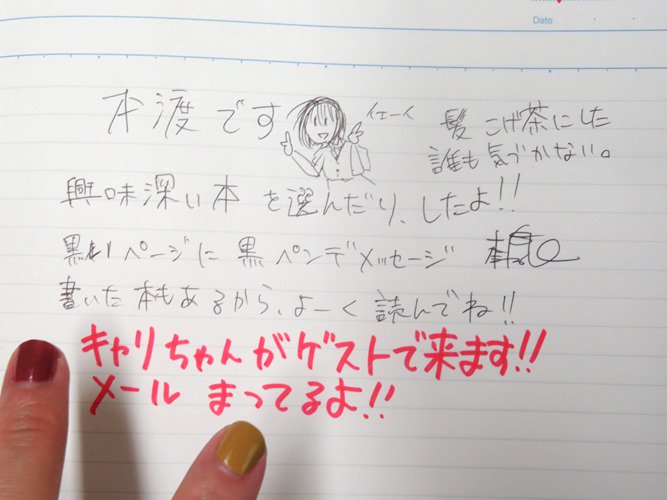 Date
本渡です
イエーイ
髪 こげ茶にした
誰も気づかない。
興味深い本 を選んだり、したよ!!
黒いページに 黒ペンデメッセージ
書いた本もあるから、よーく 読んでね!!
キャリちゃんがゲストで来ます!!
メール まってるよ!!